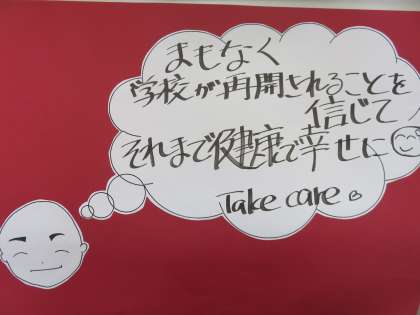 まもなく
学校が再開されることを
信じて
それまで健康で幸せに
Take care